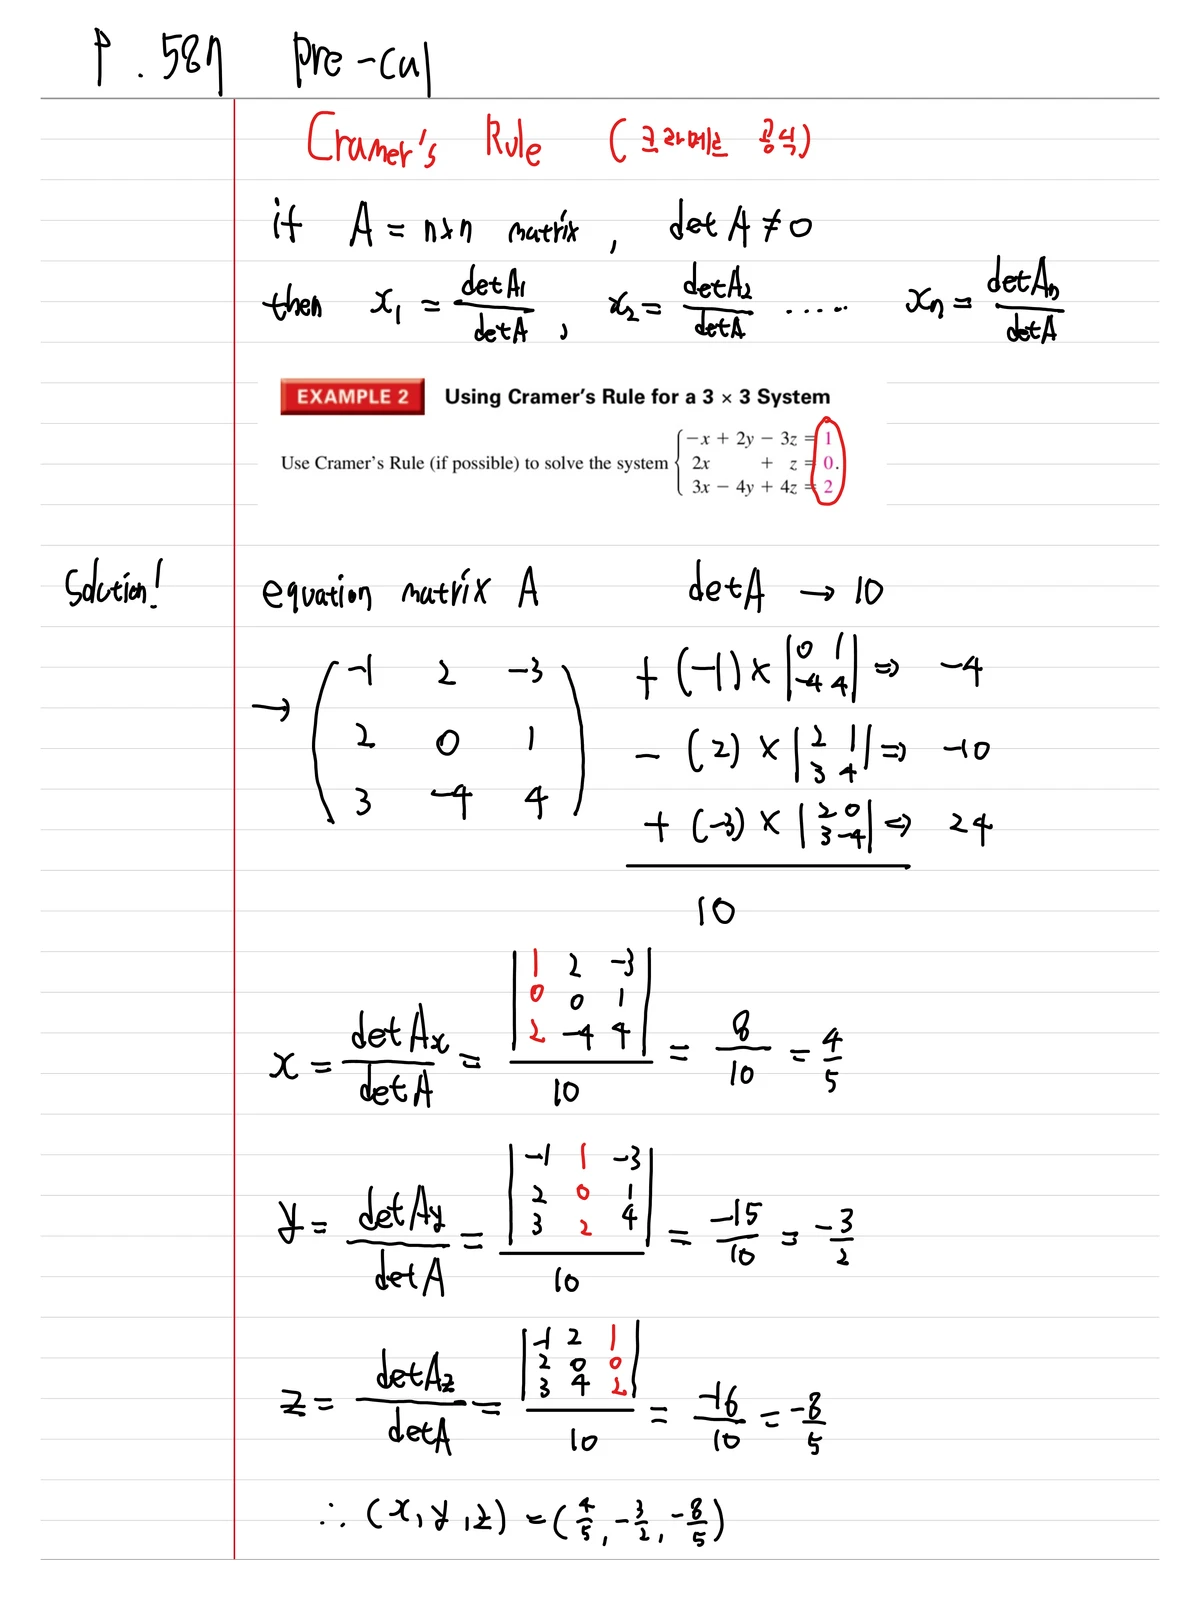 P. 587 pre-cal
Cramer's Rule (크라메르 공식)
if A = n×n matrix, det A ≠ 0
then x₁ = detA₁/detA, x₂ = detA₂/detA ..... xₙ = detAₙ/detA
EXAMPLE 2 Using Cramer's Rule for a 3 × 3 System
Use Cramer's Rule (if possible) to solve the system { −x + 2y − 3z = 1
2x + z = 0.
3x − 4y + 4z = 2
Solution! equation matrix A detA → 10
→ ( -1 2 -3
2 0 1
3 -4 4 )
+ (-1) × |0 1 / -4 4| ⇒ -4
- (2) × |2 1 / 3 4| ⇒ -10
+ (-3) × |2 0 / 3 -4| ⇒ 24
10
x = detAx/detA = |1 2 -3 / 0 0 1 / 2 -4 4| / 10 = 8/10 = 4/5
y = detAy/detA = |-1 1 -3 / 2 0 1 / 3 2 4| / 10 = -15/10 = -3/2
z = detAz/detA = |-1 2 1 / 2 0 0 / 3 4 2| / 10 = -16/10 = -8/5
∴ (x, y, z) = (4/5, -3/2, -8/5)